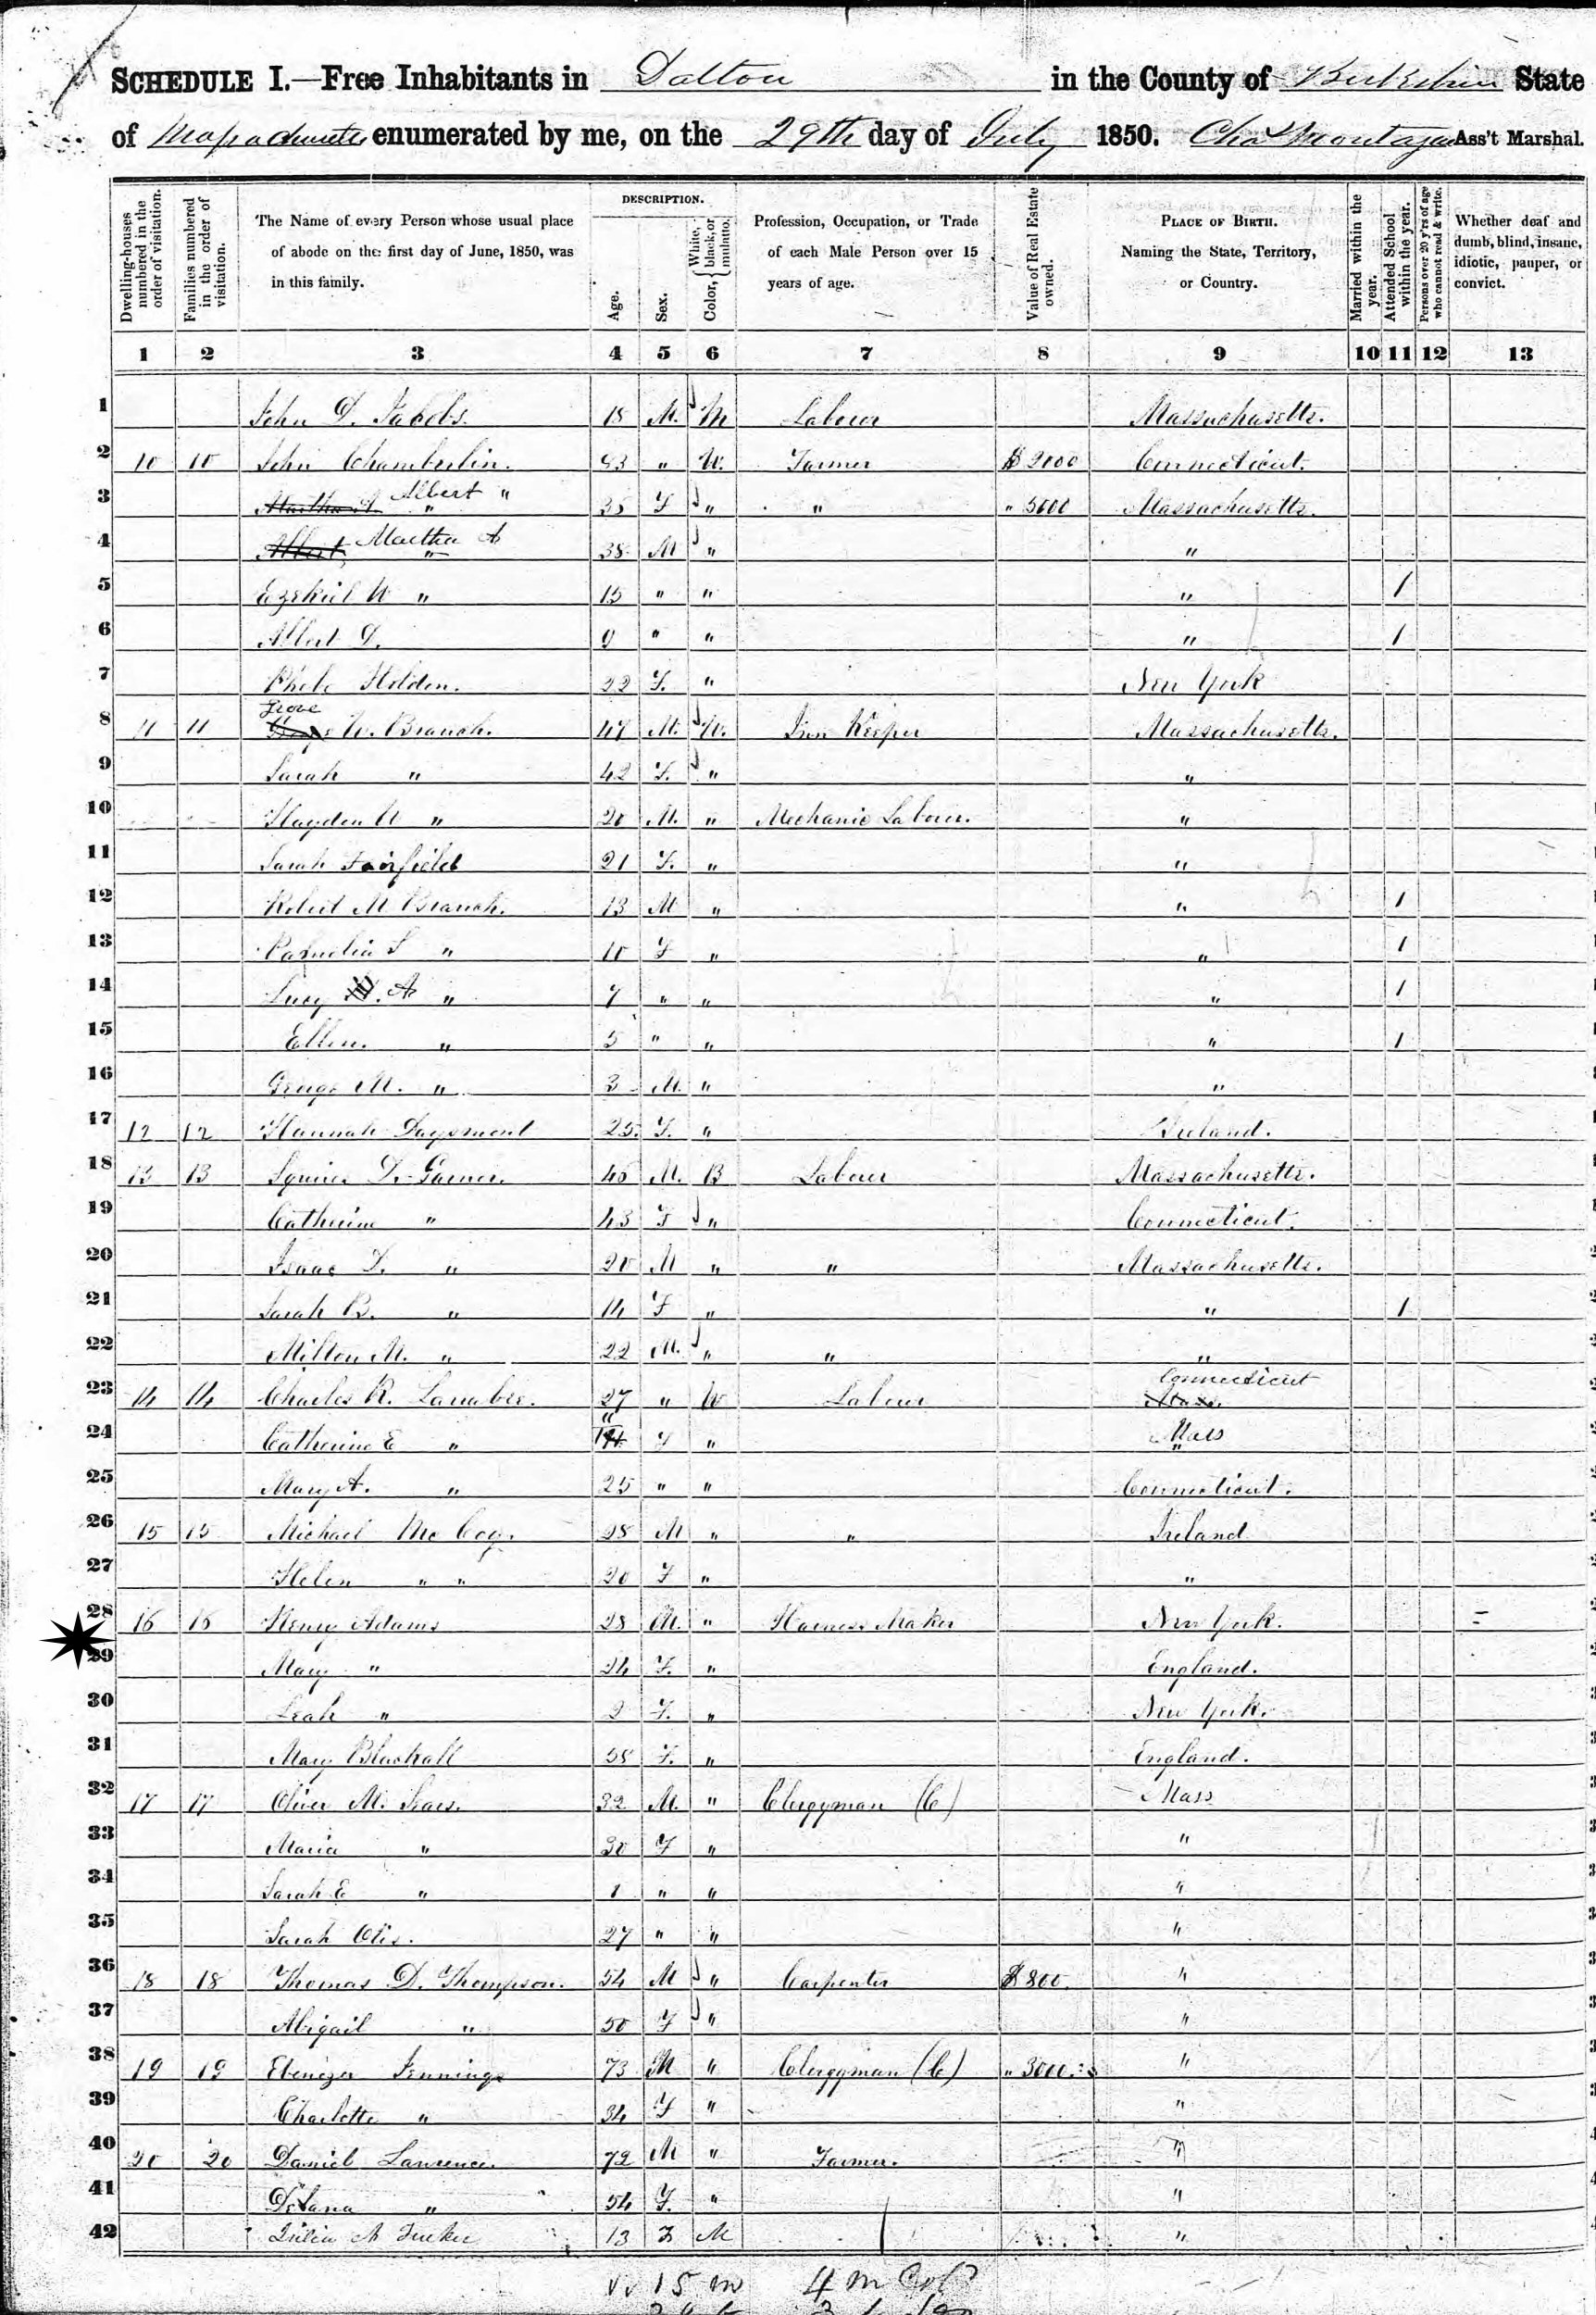 SCHEDULE I.—Free Inhabitants in Dalton in the County of Berkshire State
of Massachusetts enumerated by me, on the 29th day of July 1850. Cha Montague Ass't Marshal.
Dwelling-houses numbered in the order of visitation.
Families numbered in the order of visitation.
The Name of every Person whose usual place of abode on the first day of June, 1850, was in this family.
DESCRIPTION.
Age.
Sex.
Color, { White, black, or mulatto.
Profession, Occupation, or Trade of each Male Person over 15 years of age.
Value of Real Estate owned.
PLACE OF BIRTH. Naming the State, Territory, or Country.
Married within the year.
Attended School within the year.
Persons over 20 y'rs of age who cannot read & write.
Whether deaf and dumb, blind, insane, idiotic, pauper, or convict.
1 2 3 4 5 6 7 8 9 10 11 12 13
1 John D. Jacobs. 18 M. M Labourer Massachusetts.
2 10 10 John Chamberlin. 83 " W. Farmer $2000 Connecticut.
3 Martha A Albert " " 35 F " " " 5600 Massachusetts.
4 Albert Martha A " 38 M " "
5 Ezekiel W " 15 " " " 1
6 Albert D. 9 " " " 1
7 Phebe Holden. 22 F. " New York
8 11 11 Grove W. Branch. 47 M. W. Inn Keeper Massachusetts.
9 Sarah " 42 F. " "
10 Hayden W " 20 M. " Mechanic Labourer. "
11 Sarah Fairfield 21 F. " "
12 Robert M Branch. 13 M " " 1
13 Pamelia S " 10 F " " 1
14 Lucy W. A " 7 " " " 1
15 Ellen. " 5 " " " 1
16 George M. " 3 M. " "
17 12 12 Hannah 25. F. " Ireland.
18 13 13 Squires D. 46 M. B Labourer Massachusetts.
19 Catherine " 43 F " Connecticut.
20 Isaac " 20 M " " Massachusetts.
21 Sarah B. " 14 F " " 1
22 Milton M. " 22 M. " " "
23 14 14 Charles R. Larrabee. 27 " W Labourer Connecticut Mass.
24 Catherine E " F " Mass "
25 Mary A. " 25 " " Connecticut.
26 15 15 Michael McCoy. 28 M " " Ireland
27 Helen " " 20 F " "
28 16 16 Henry Adams 28 M. " Harness Maker New York.
29 Mary " 24 F. " England.
30 Leah " 2 F. " New York.
31 Mary Blackall 58 F. " England.
32 17 17 Oliver M. Sears. 32 M. " Clergyman (C) Mass
33 Maria " 30 F " "
34 Sarah E " 1 " " "
35 Sarah Otis. 27 " " "
36 18 18 Thomas D. Thompson. 54 M " Carpenter $800. "
37 Abigail " 50 F " "
38 19 19 Ebenezer Jennings 73 M " Clergyman (C) " 3000 "
39 Charlotte " 34 F " "
40 20 20 Daniel Lawrence. 72 M " Farmer. "
41 " 54 F. " "
42 A Tucker 13 F M "
15 m 4 m Col